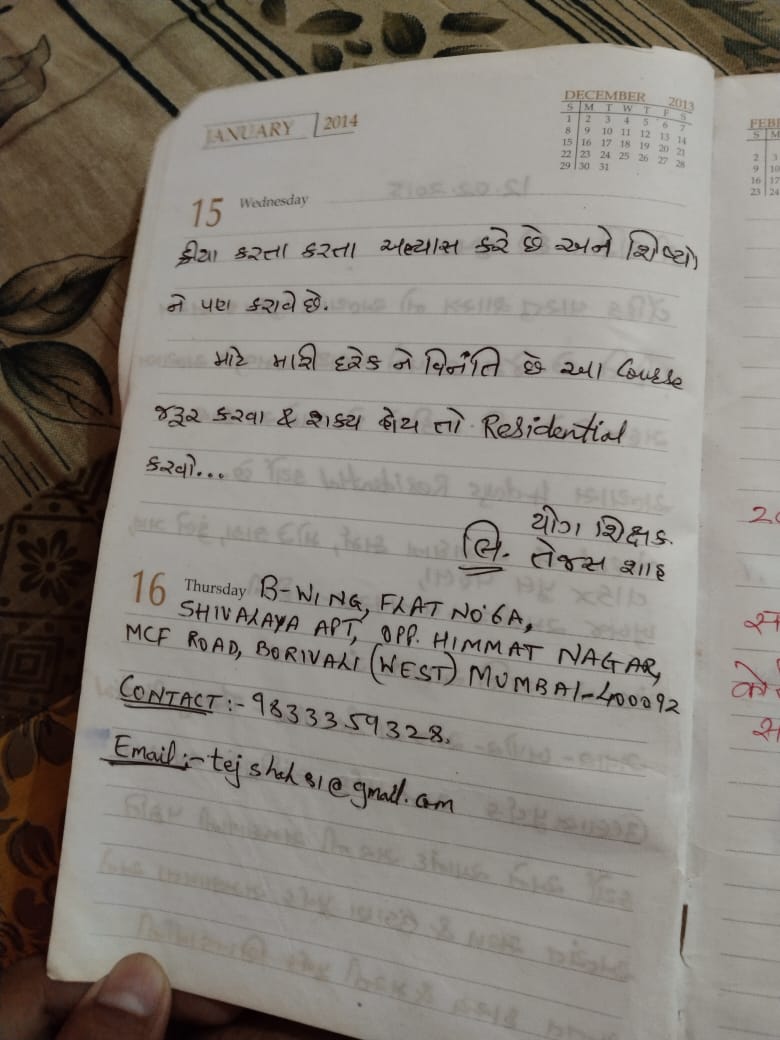 JANUARY 2014
DECEMBER 2013
S M T W T F S
1 2 3 4 5 6 7
8 9 10 11 12 13 14
15 16 17 18 19 20 21
22 23 24 25 26 27 28
29 30 31
15 Wednesday
ક્રીયા કરતા કરતા અભ્યાસ કરે છે અને શિષ્યો
ને પણ કરાવે છે.
માટે મારી દરેક ને વિનંતિ છે આ Course
જરૂર કરવા & શક્ય હોય તો Residential
કરવો...
યોગ શિક્ષક.
લિ. તેજસ શાહ
16 Thursday B-WING, FLAT NO:6A,
SHIVALAYA APT, OPP. HIMMAT NAGAR,
MCF ROAD, BORIVALI (WEST) MUMBAI-400092
CONTACT:- 9833359328.
Email:- tejshah81@gmail.com